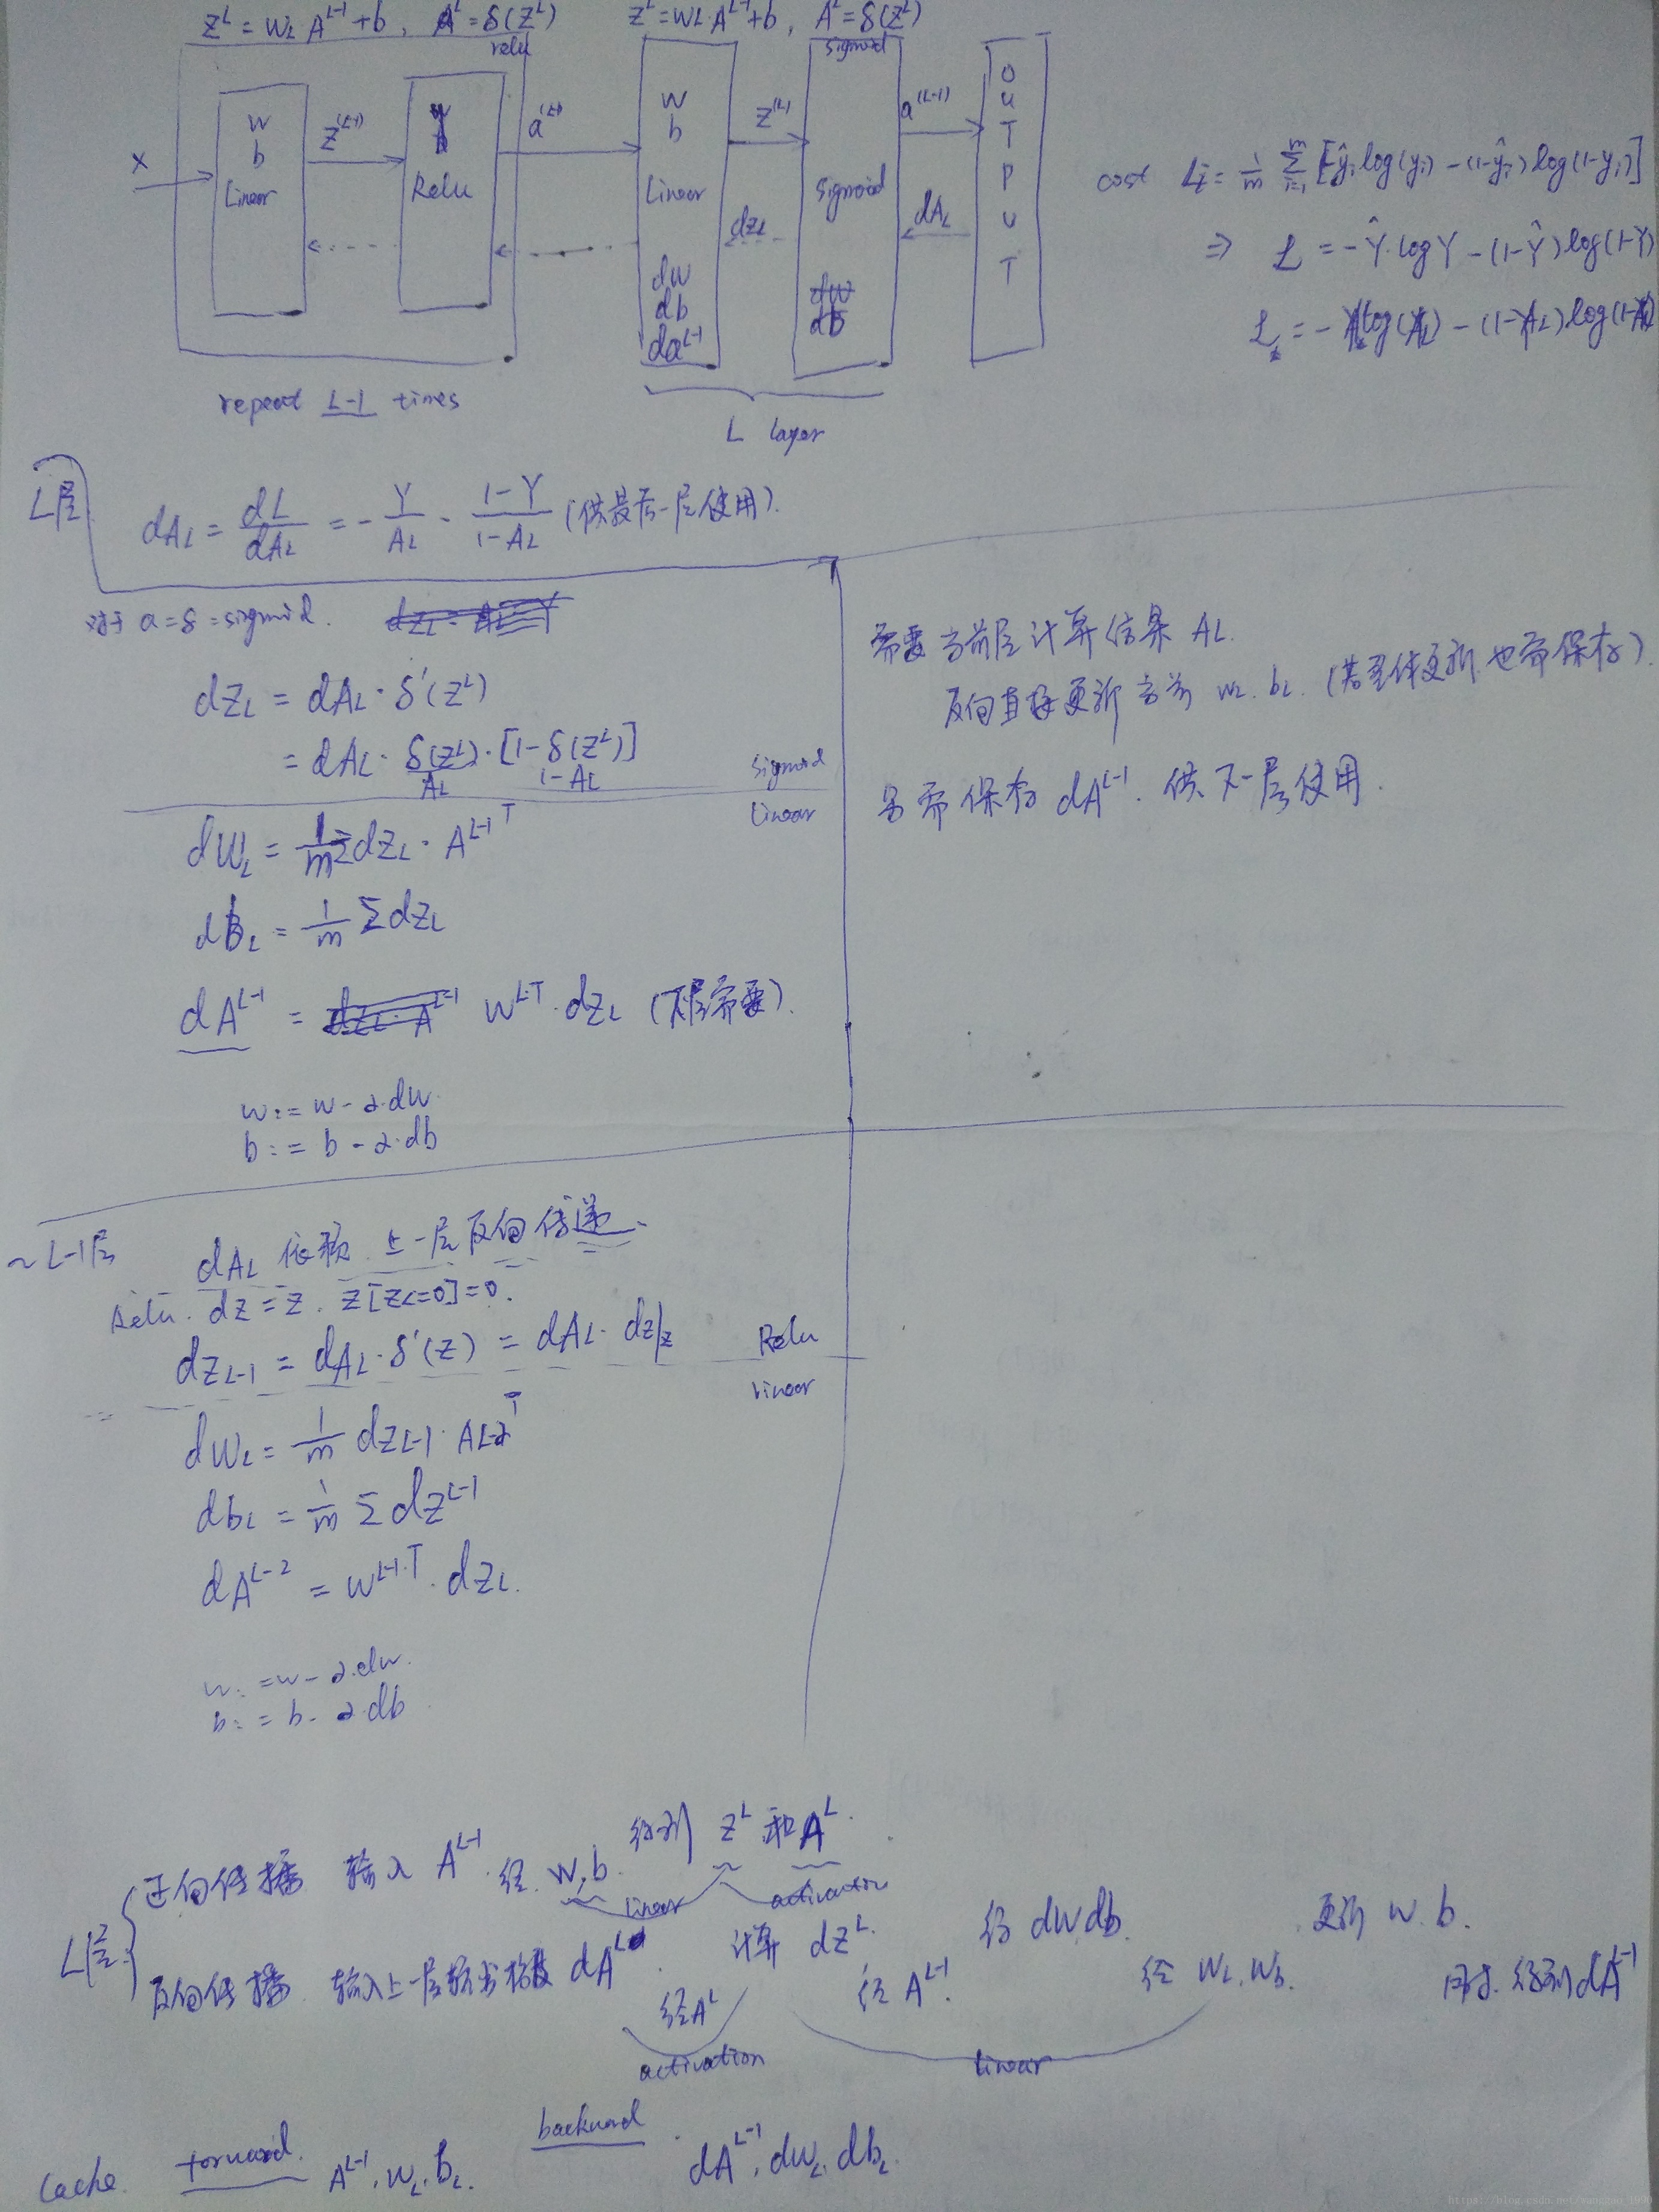 Z^L = W_L A^{L-1} + b, A^L = δ(Z^L)
relu
Z^L = W_L A^{L-1} + b, A^L = δ(Z^L)
sigmoid
x
w
b
Linear
Z^{(L-1)}
Relu
a^{(L-1)}
w
b
Linear
dw
db
da^{L-1}
Z^{(L)}
dZ_L
sigmoid
dw
db
a^{(L-1)}
dA_L
OUTPUT
repeat L-1 times
L layer
cost L_i = 1/m Σ_{i=1}^{m} [-ŷ_i log(y_i) - (1-ŷ_i) log(1-y_i)]
⇒ L = -Ŷ·log Y - (1-Ŷ) log(1-Y)
L层
dA_L = dL/dA_L = - Y/A_L - (1-Y)/(1-A_L) (供最后一层使用).
对于 a = δ = sigmoid.
dZ_L = dA_L · δ'(Z^L)
= dA_L · δ(Z^L) · [1-δ(Z^L)]
A_L 1-A_L
sigmoid
Linear
dW_L = 1/m Σ dZ_L · A^{L-1 T}
dB_L = 1/m Σ dZ_L
dA^{L-1} = W^{L·T} · dZ_L (下层需要).
w := w - α·dw.
b := b - α·db
需要当前层计算结果 A_L.
反向直接更新当前 W_L. b_L. (若整体更新,也需保存).
另需保存 dA^{L-1}. 供下一层使用.
~L-1层
dA_L 依赖 上一层反向传递.
Relu. dz = z. z[z<=0]=0.
dZ_{L-1} = dA_L · δ'(z) = dA_L · dz/z
Relu
Linear
dW_L = 1/m dZ_{L-1} · A_{L-2}^T
db_L = 1/m Σ dZ^{L-1}
dA^{L-2} = W^{L-1·T} · dZ_L.
w: = w - α·dw.
b: = b - α·db
L层:
正向传播 输入 A^{L-1}. 经 W,b. 得到 Z^L 和 A^L.
linear activation
反向传播 输入上一层输出梯度 dA^L. 计算 dZ^L. 得 dW db. 更新 w.b.
经A^L 经 A^{L-1}. 经 W_L, W_b. 同时. 得到 dA^{L-1}
activation linear
Cache. forward. A^{L-1}, W_L, b_L. backward. dA^{L-1}, dW_L, db_L